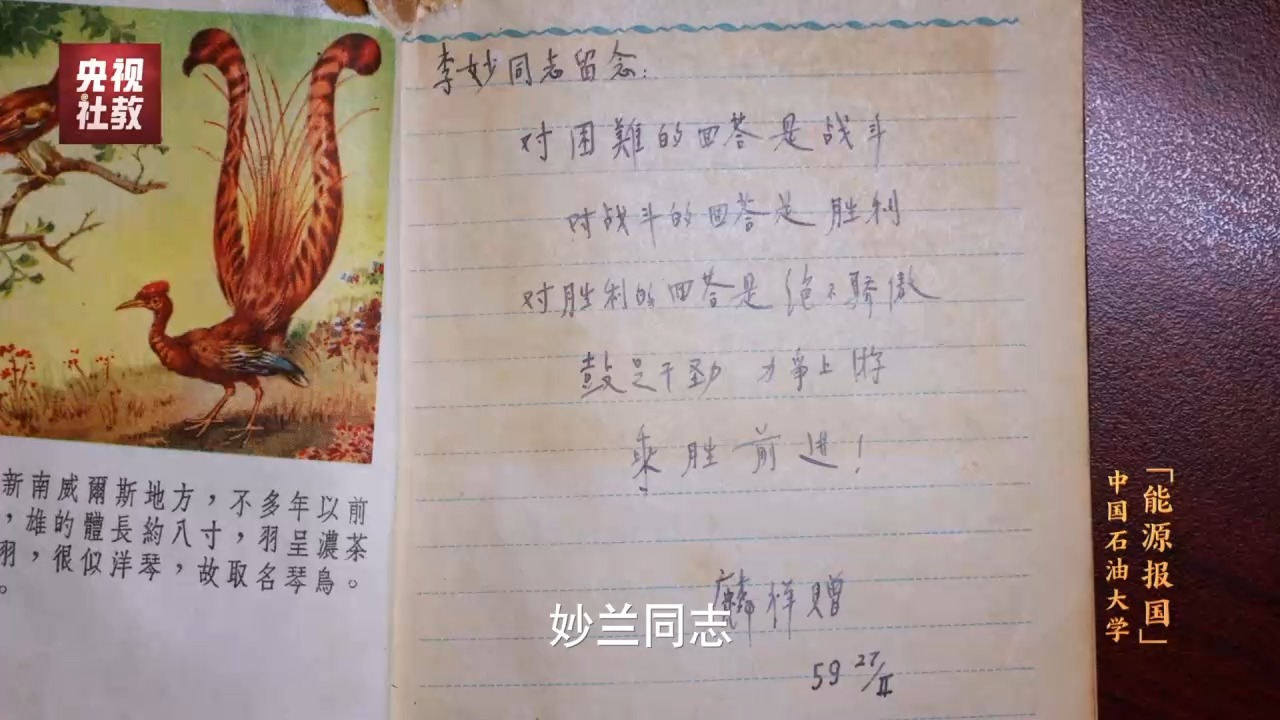 央视
社教
李妙同志留念:
对困難的回答是战斗
对战斗的回答是胜利
对胜利的回答是绝不驕傲
鼓足干劲 力争上游
乘胜前进!
麟祥赠
59 27/II
新南威爾斯地方，不多年以前
，雄的體長約八寸，羽呈濃茶
羽，很似洋琴，故取名琴鳥。
。
妙兰同志
「能源报国」
中国石油大学